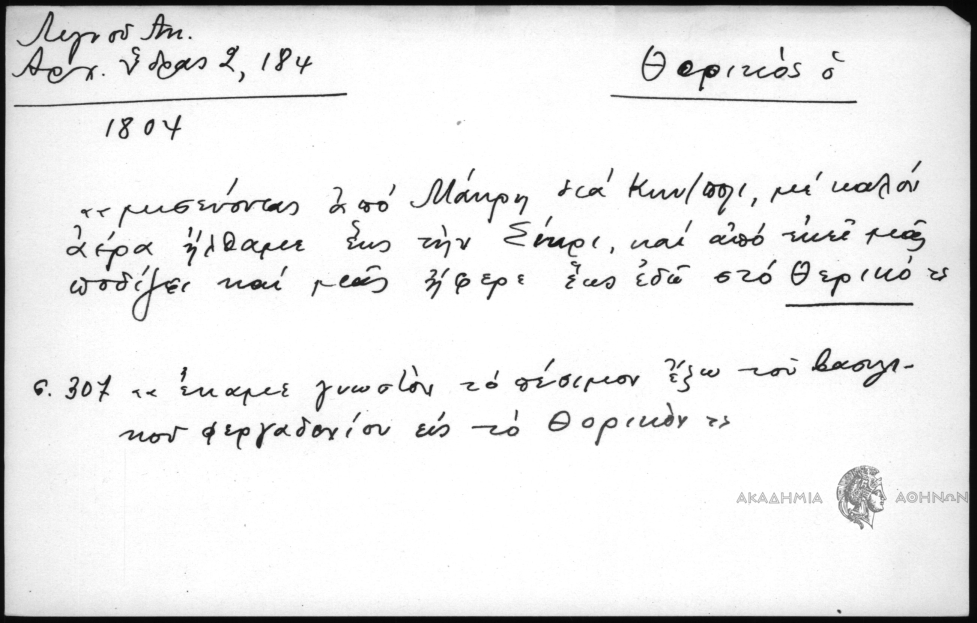 Λιγνού Αν.
Αρχ. Ύδρας 2, 184
Θορικός ὁ
1804
"μισεύοντας ἀπό Μάκρη διά Κων/πολι, μέ καλόν
ἀέρα ἤλθαμε ἕως τήν Σύκρι, καί ἀπό ἐκεῖ μᾶς
ποδίζει καί μᾶς ἤφερε ἕως ἐδῶ στό Θερικό"
σ. 307 "ἐκαμε γνωστὸν τό πέσιμον ἔξω τοῦ βασιλι-
κου φεργαδονίου εἰς τό Θορικὸν"
ΑΚΑΔΗΜΙΑ ΑΘΗΝΩΝ